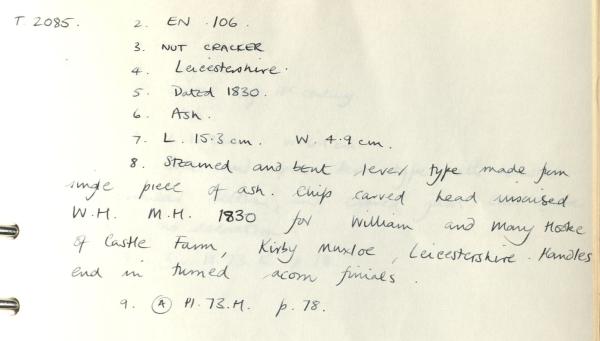 T. 2085. 2. EN . 106 .
3. NUT CRACKER
4. Leicestershire.
5. Dated 1830.
6. Ash.
7. L. 15.3 cm. W. 4.9 cm.
8. Steamed and bent lever type made from
single piece of ash. Chip carved head inscribed
W.H. M.H. 1830 for William and Mary
of Castle Farm, Kirby Muxloe, Leicestershire. Handles
end in turned acorn finials.
9. (A) Pl. 73.H. p. 78.